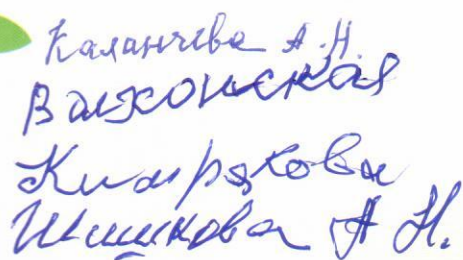 Каланчева А.Н.
Волконская
Кидрякова
Шишкова А Н.